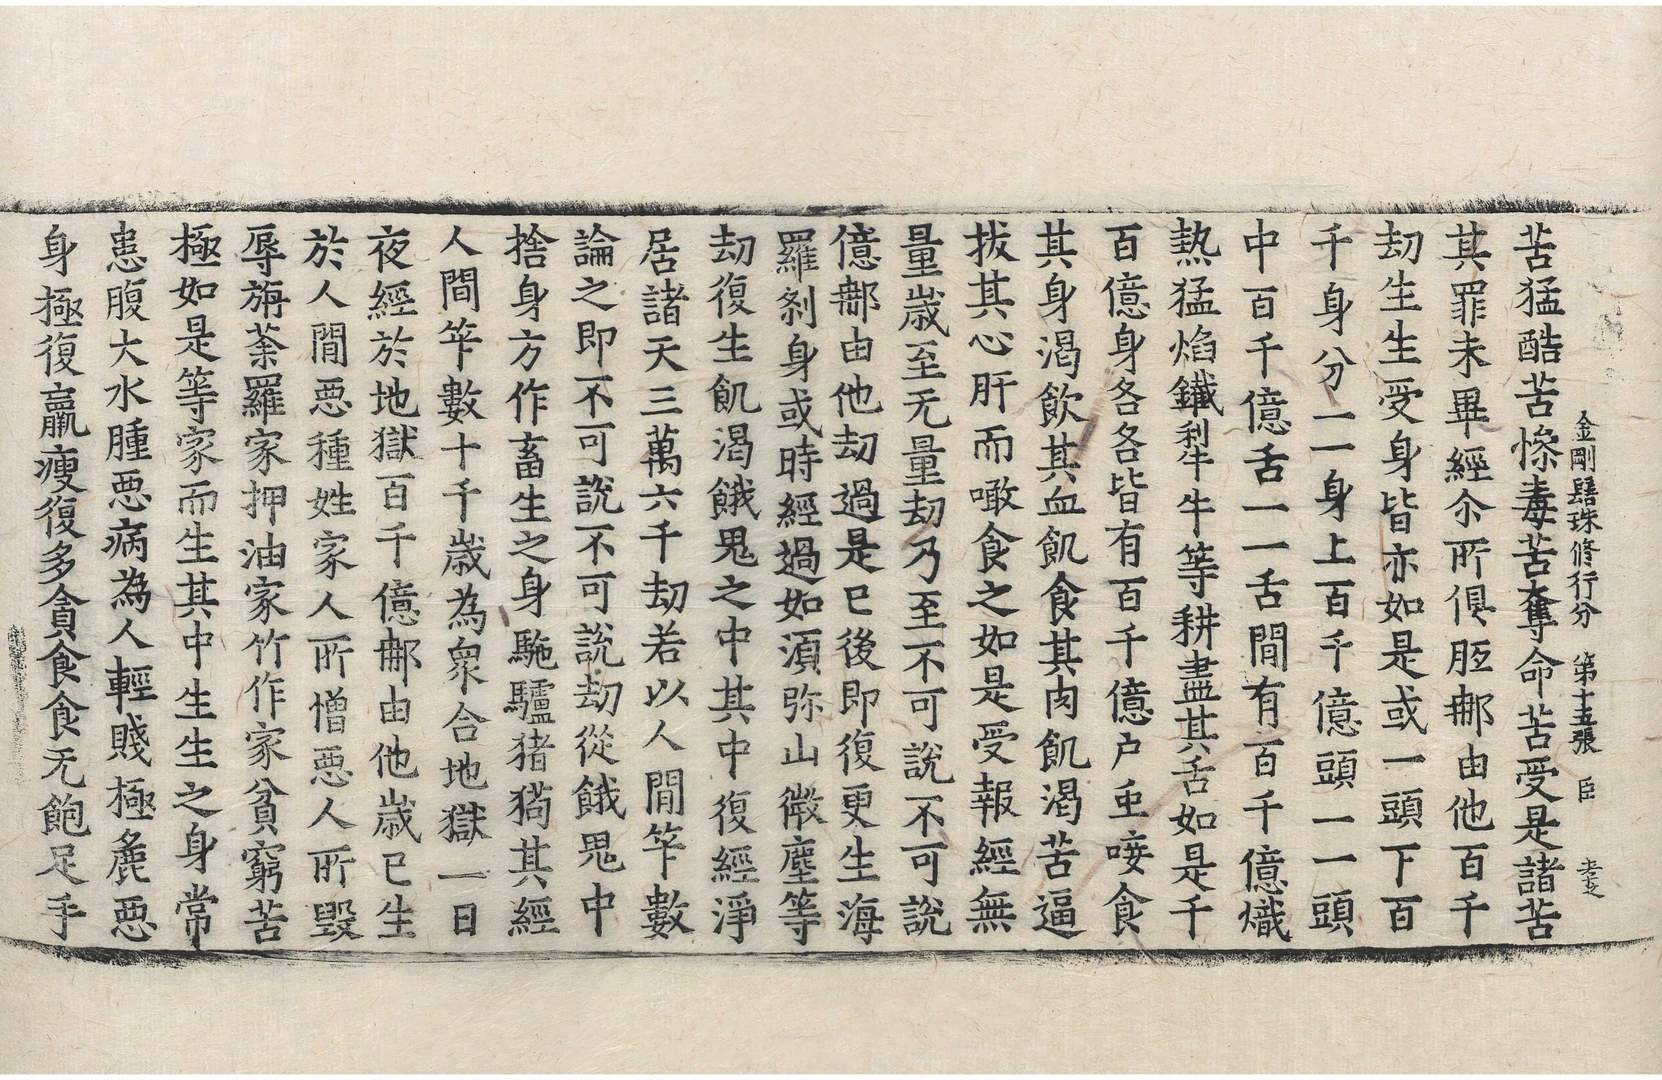 金剛髻珠修行分 第十五張 臣
苦猛酷苦慘毒苦奪命苦受是諸苦
其罪未畢經尒所俱胝那由他百千
劫生生受身皆亦如是或一頭下百
千身分一一身上百千億頭一一頭
中百千億舌一一舌間有百千億熾
熱猛焰鐵犁牛等耕盡其舌如是千
百億身各各皆有百千億户虫唼食
其身渴飲其血飢食其肉飢渴苦逼
拔其心肝而噉食之如是受報經無
量歲至无量劫乃至不可說不可說
億那由他劫過是已後即復更生海
羅剎身或時經過如湏弥山微塵等
劫復生飢渴餓鬼之中其中復經淨
居諸天三萬六千劫若以人間筭數
論之即不可說不可說劫從餓鬼中
捨身方作畜生之身駞驢猪狗其經
人間筭數十千歲為衆合地獄一日
夜經於地獄百千億那由他歲已生
於人間惡種姓家人所憎惡人所毀
辱旃荼羅家押油家竹作家貧窮苦
極如是等家而生其中生生之身常
患腹大水腫惡病為人輕賤極麁惡
身極復羸瘦復多貪食食无飽足手